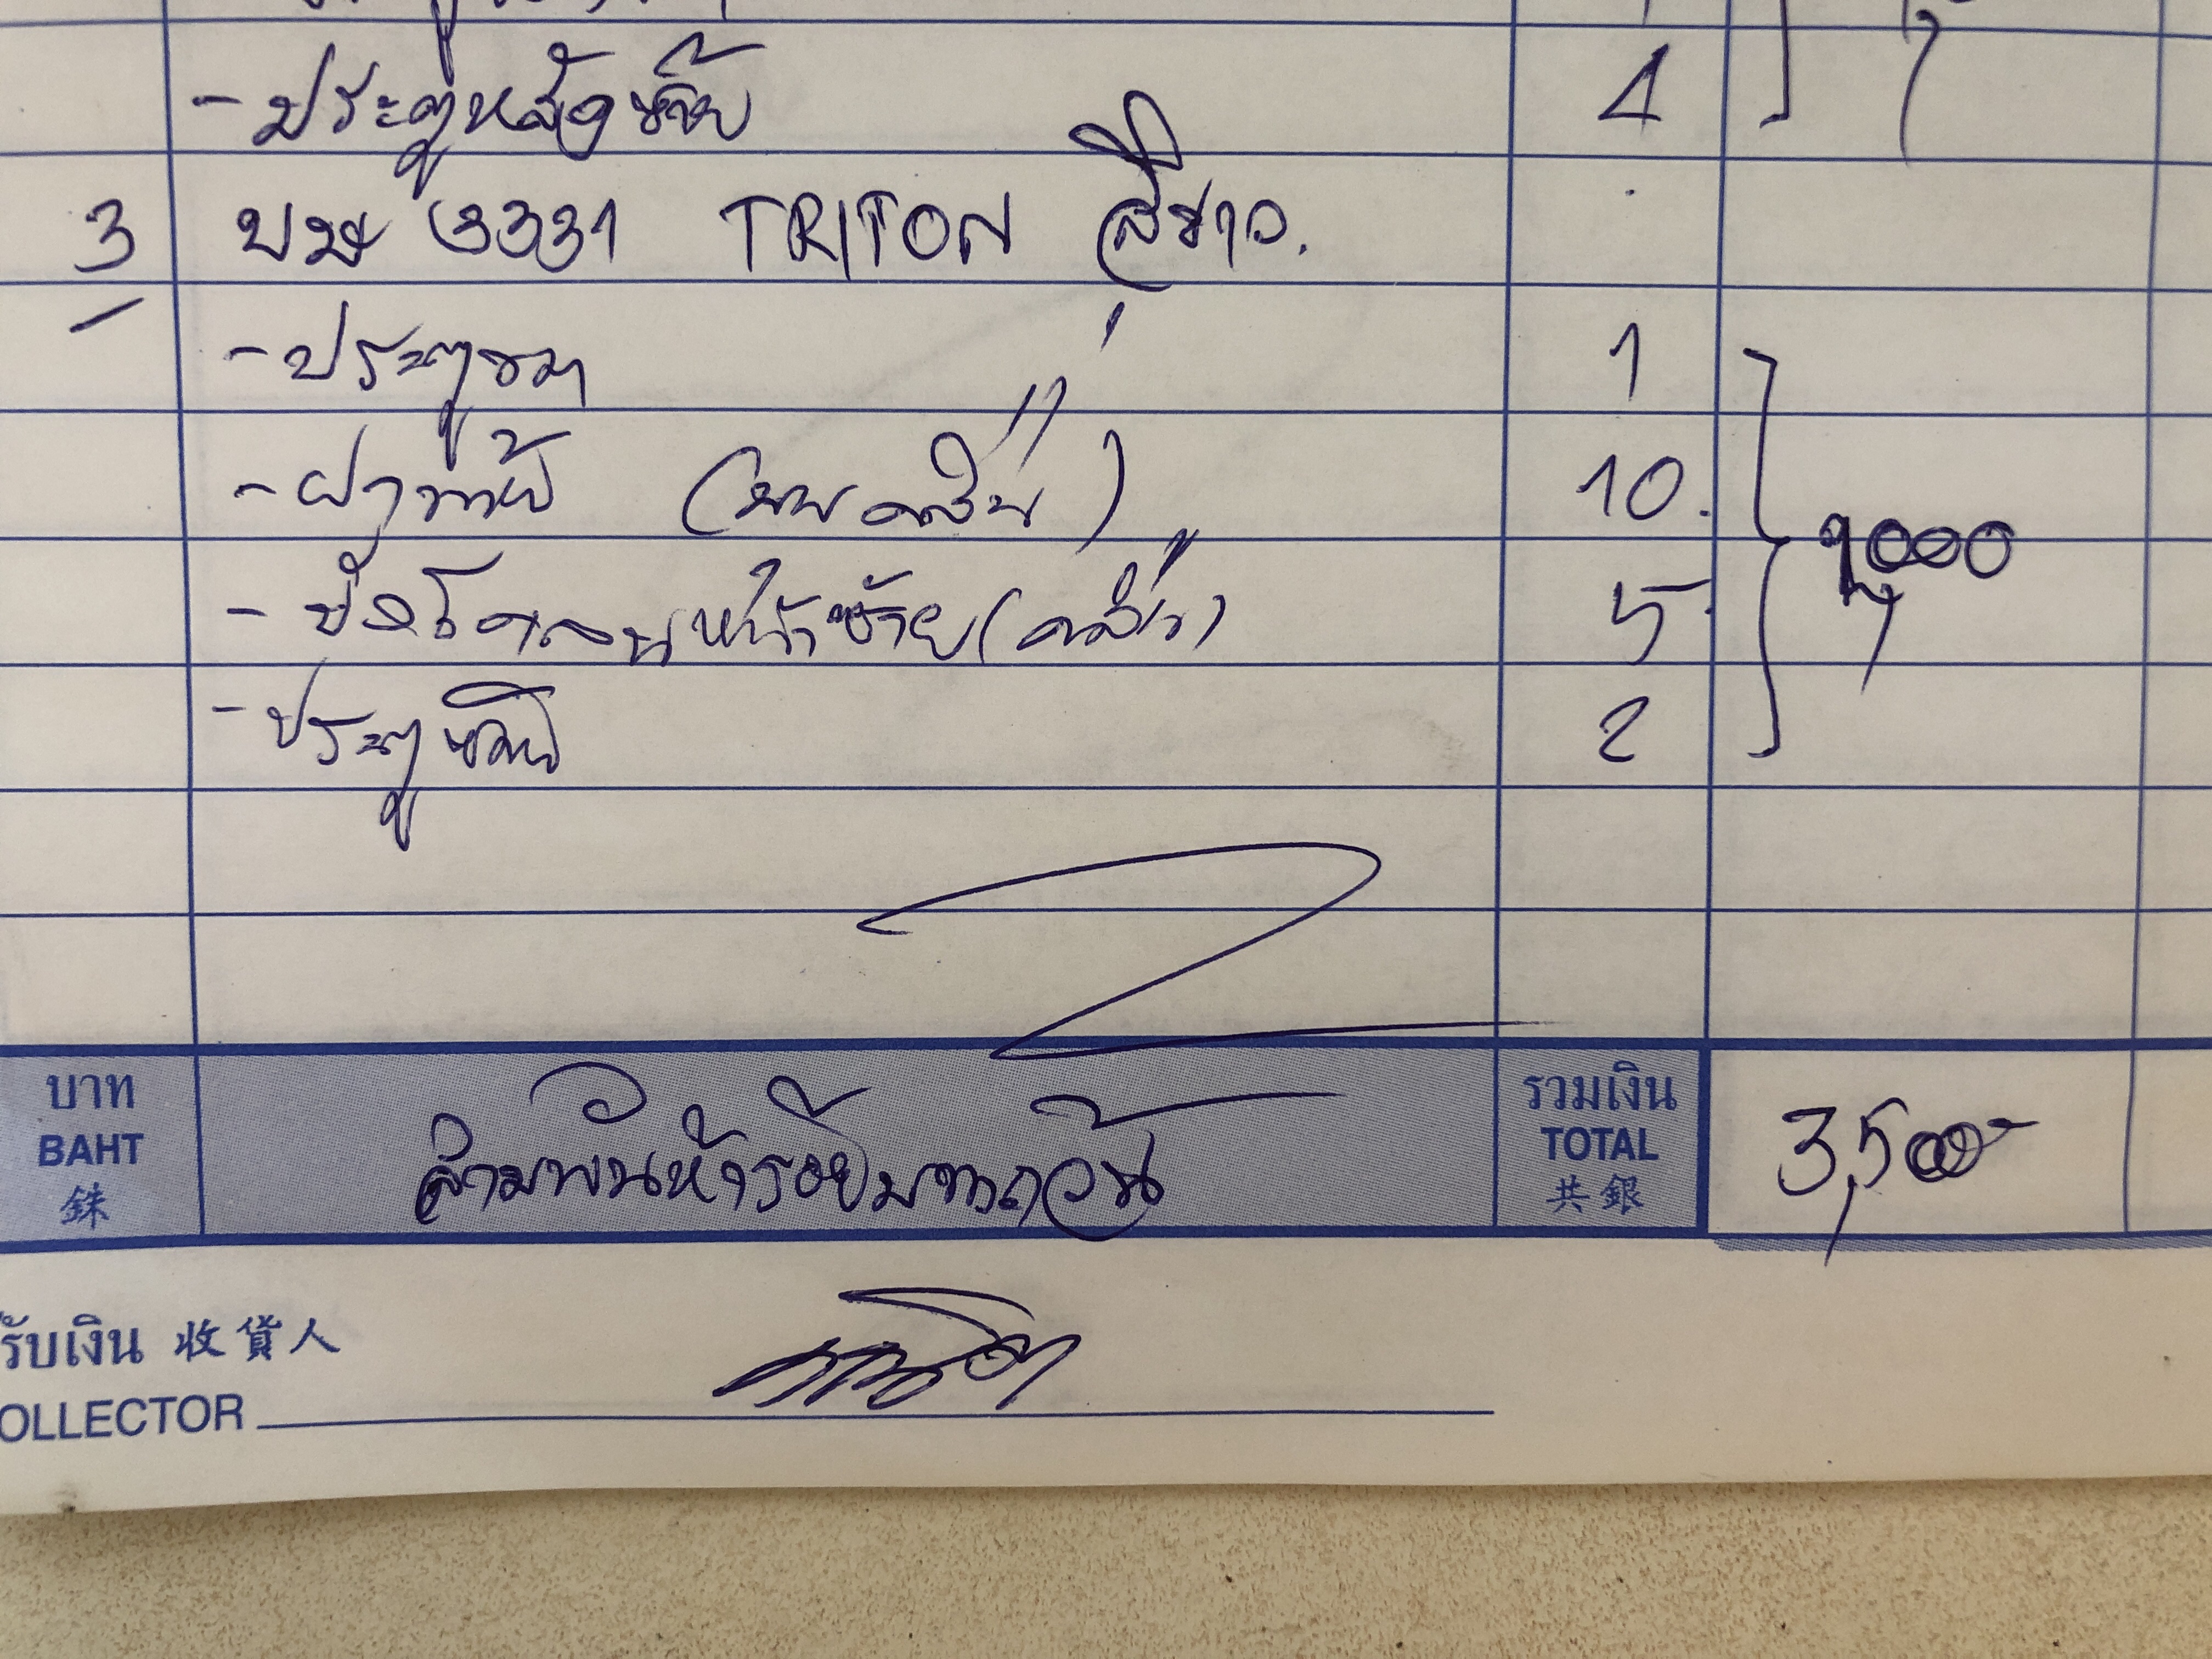 - ประตูหลังซ้าย 1
3 บษ 3331 TRITON สีขาว.
- ประตูขวา 1
- ฝาท้าย ( ) 10.
- บังโคลนหน้าซ้าย ( ) 5
2,000
- ประตูซ้าย 2
บาท
BAHT
銖
สามพันห้าร้อยบาทถ้วน
รวมเงิน
TOTAL
共銀
3,500-
รับเงิน 收貨人
OLLECTOR